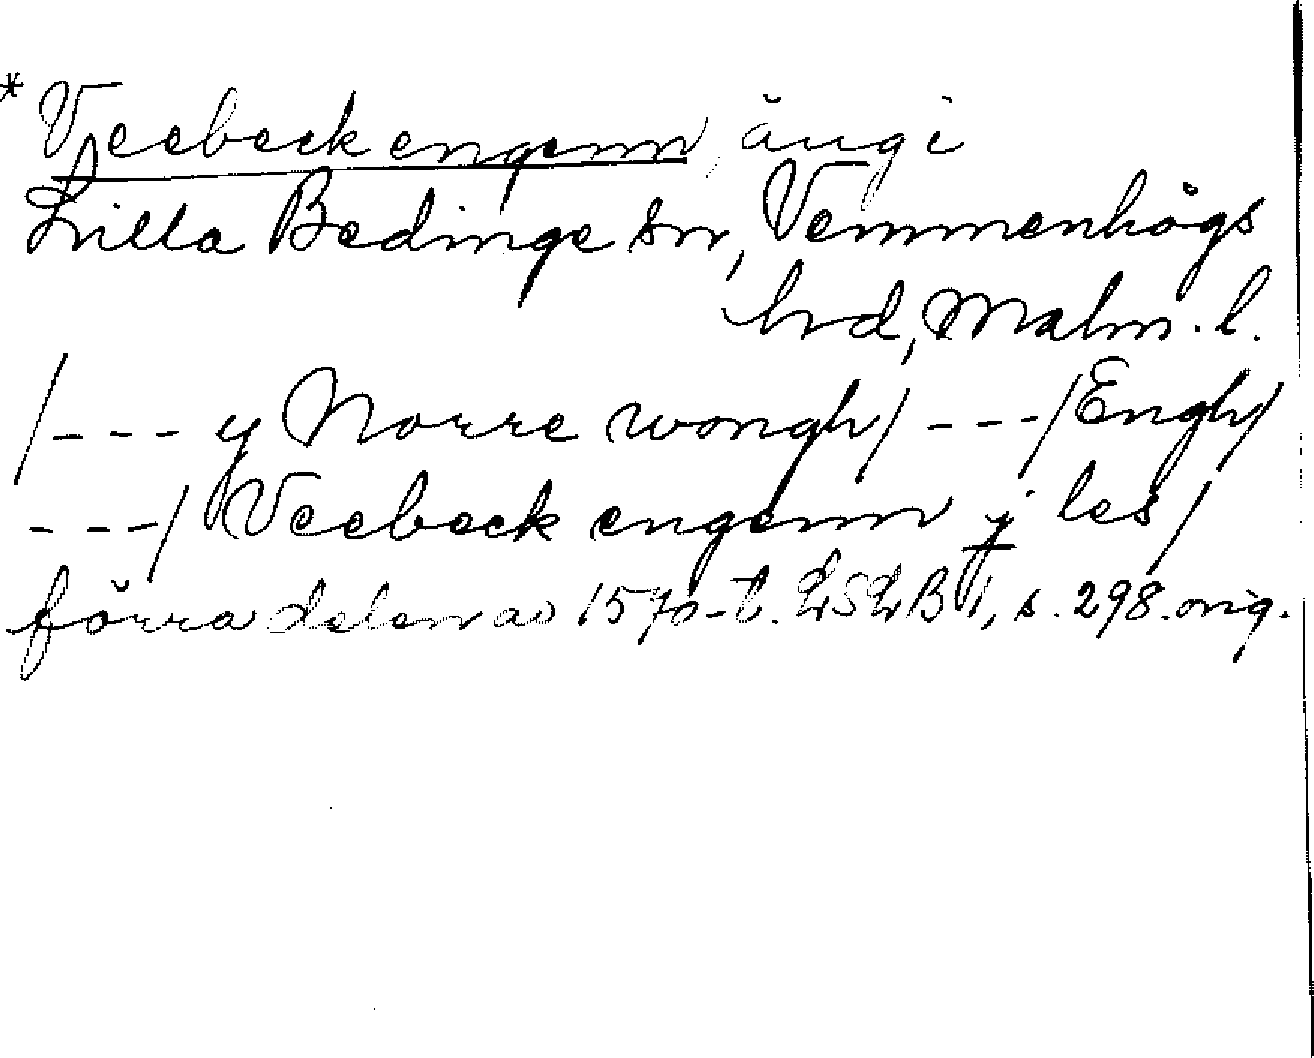 * Veebeck engenn, äng i
Lilla Bedinge sn, Vemmenhögs
hrd, Malm. l.
/--- y Norre wongh/ ---/Engh/
---/ Veebeck engenn j les/
förra delen av 1570-t. LSLB 1, s. 298. orig.